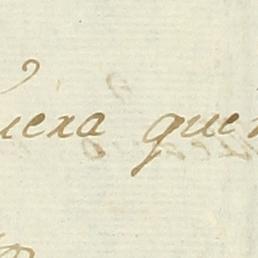 uexa que